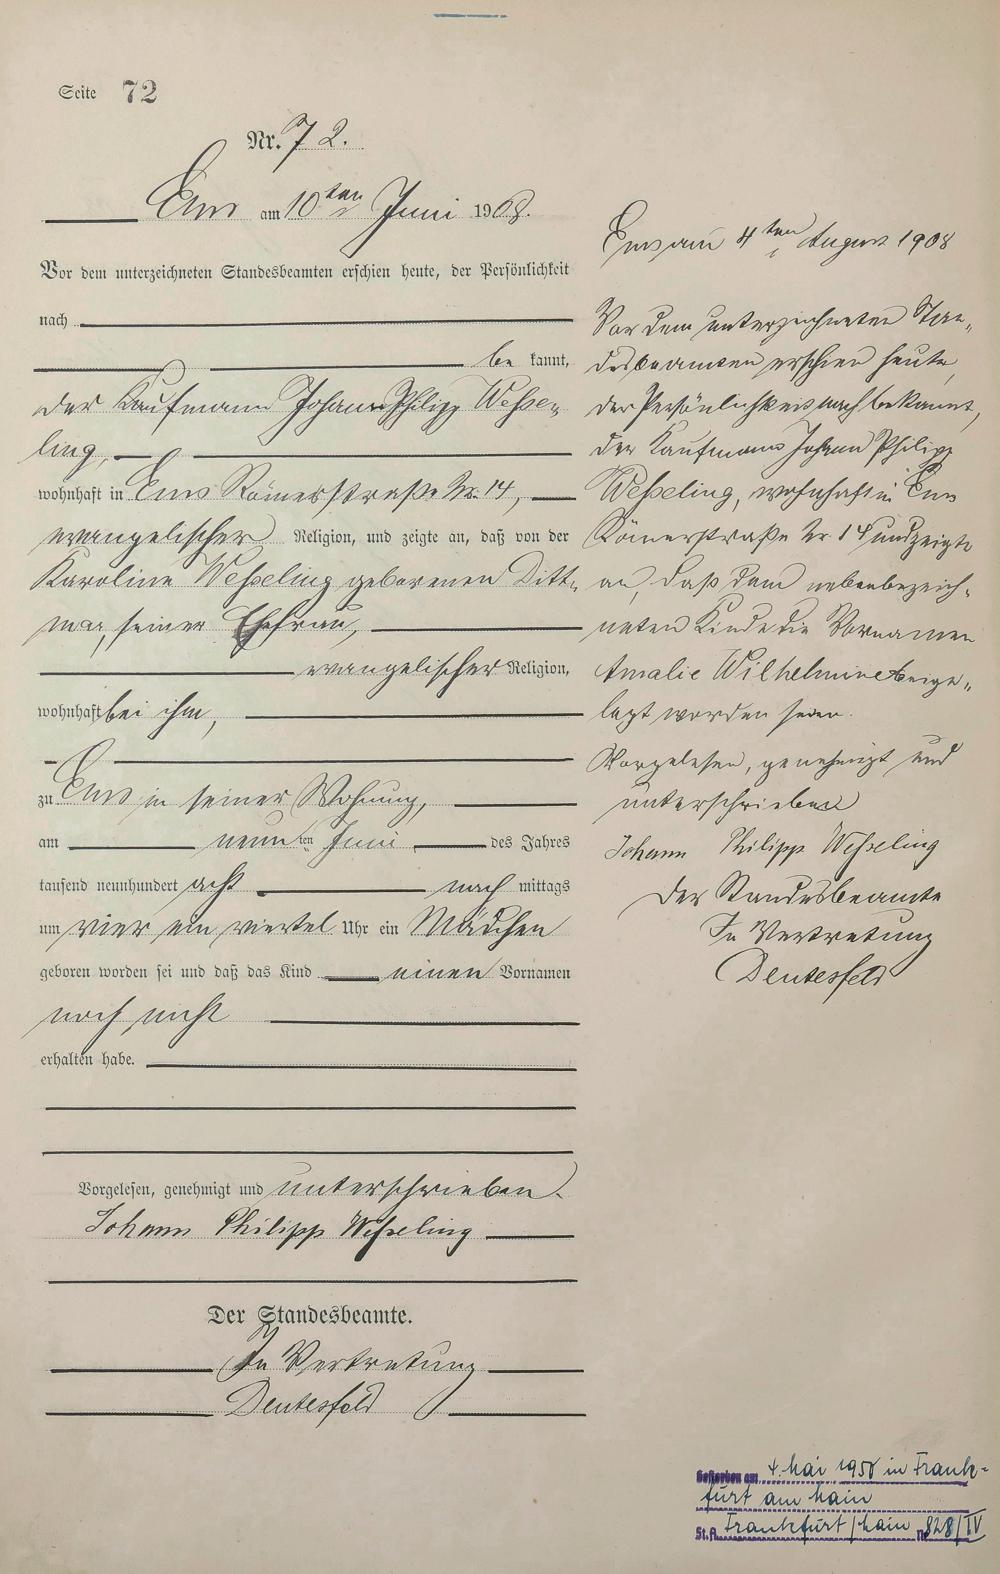 Seite 72
Nr. 72.
Ems am 10ten Juni 1908.
Vor dem unterzeichneten Standesbeamten erschien heute, der Persönlichkeit
nach
be kannt,
der Kaufmann Johann Philipp Wesse-
ling,
wohnhaft in Ems Römerstraße Nr. 14,
evangelischer Religion, und zeigte an, daß von der
Karoline Wesseling geborenen Ditt-
mar, seiner Ehefrau,
evangelischer Religion,
wohnhaft bei ihm,
zu Ems in seiner Wohnung,
am neunten Juni des Jahres
tausend neunhundert acht nach mittags
um vier ein viertel Uhr ein Mädchen
geboren worden sei und daß das Kind einen Vornamen
noch nicht
erhalten habe.
Vorgelesen, genehmigt und unterschrieben.
Johann Philipp Wesseling
Der Standesbeamte.
In Vertretung
Ems am 4ten August 1908
Vor dem unterzeichneten Stan-
desbeamten erschien heute,
der Persönlichkeit nach bekannt,
der Kaufmann Johann Philipp
Wesseling, wohnhaft in Ems
Römerstraße Nr 14 und zeigte
an, daß dem nebenbezeich-
neten Kinde die Vornamen
Amalie Wilhelmine beige-
legt worden seien.
Vorgelesen, genehmigt und
unterschrieben
Johann Philipp Wesseling
Der Standesbeamte
In Vertretung
Gestorben am 4. Mai in Frank-
furt am Main
St.A. Frankfurt/Main Nr. 828/IV